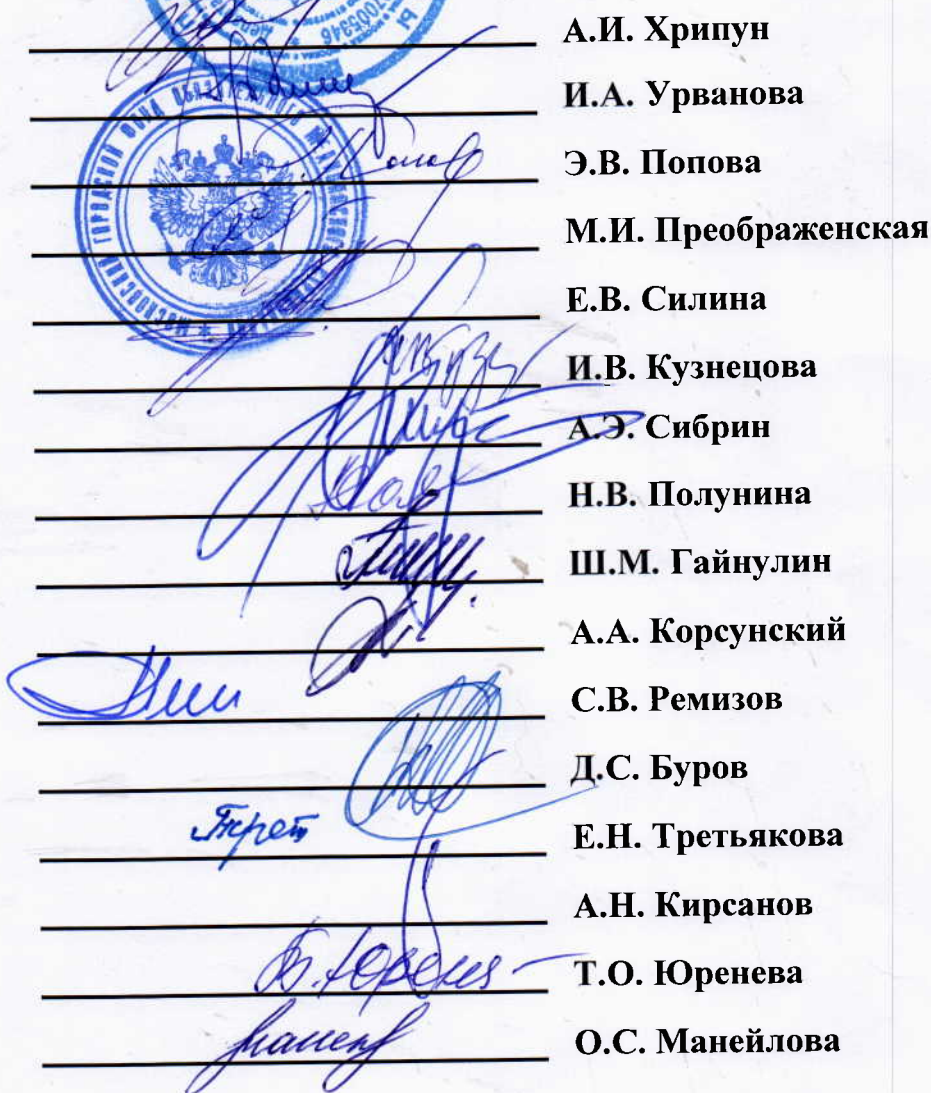 А.И. Хрипун
И.А. Урванова
Э.В. Попова
М.И. Преображенская
Е.В. Силина
И.В. Кузнецова
А.Э. Сибрин
Н.В. Полунина
Ш.М. Гайнулин
А.А. Корсунский
С.В. Ремизов
Д.С. Буров
Трет
Е.Н. Третьякова
А.Н. Кирсанов
Т.О. Юренева
О.С. Манейлова